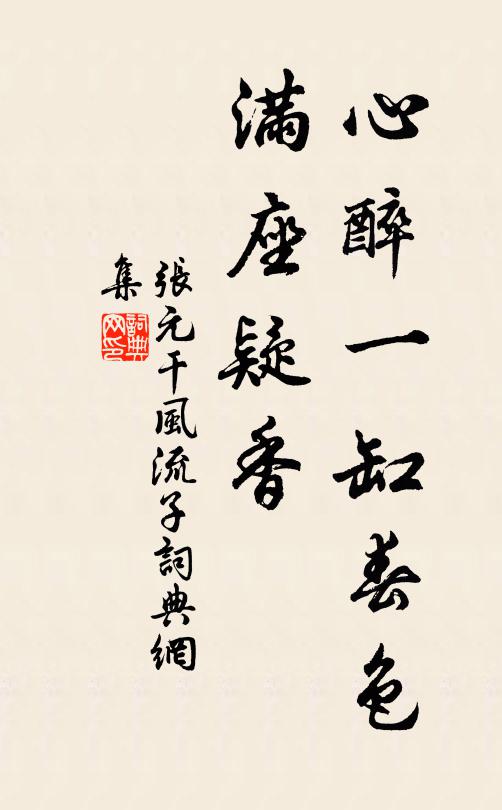 心醉一缸春色
滿座疑香
張元干風流子詞典網
集
詞典
网印